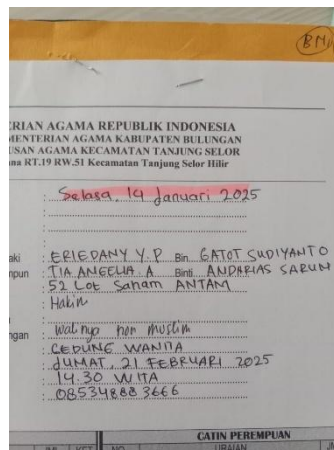 BMI
ERIAN AGAMA REPUBLIK INDONESIA
MENTERIAN AGAMA KABUPATEN BULUNGAN
USAN AGAMA KECAMATAN TANJUNG SELOR
na RT.19 RW.51 Kecamatan Tanjung Selor Hilir
: Selasa, 14 Januari 2025
:
:
aki : ERIEDANY Y.P Bin GATOT SUDIYANTO
mpun : TIA ANGELIA. A Binti ANDARIAS SARUN
: 52 Lot Saham ANTAM
: Hakim
:
ngan : walinya non muslim
: GEDUNG WANITA
: JUMAT, 21 FEBRUARI 2025
: 14.30 WITA
: 08534888 3666
CATIN PEREMPUAN
KET NO URAIAN